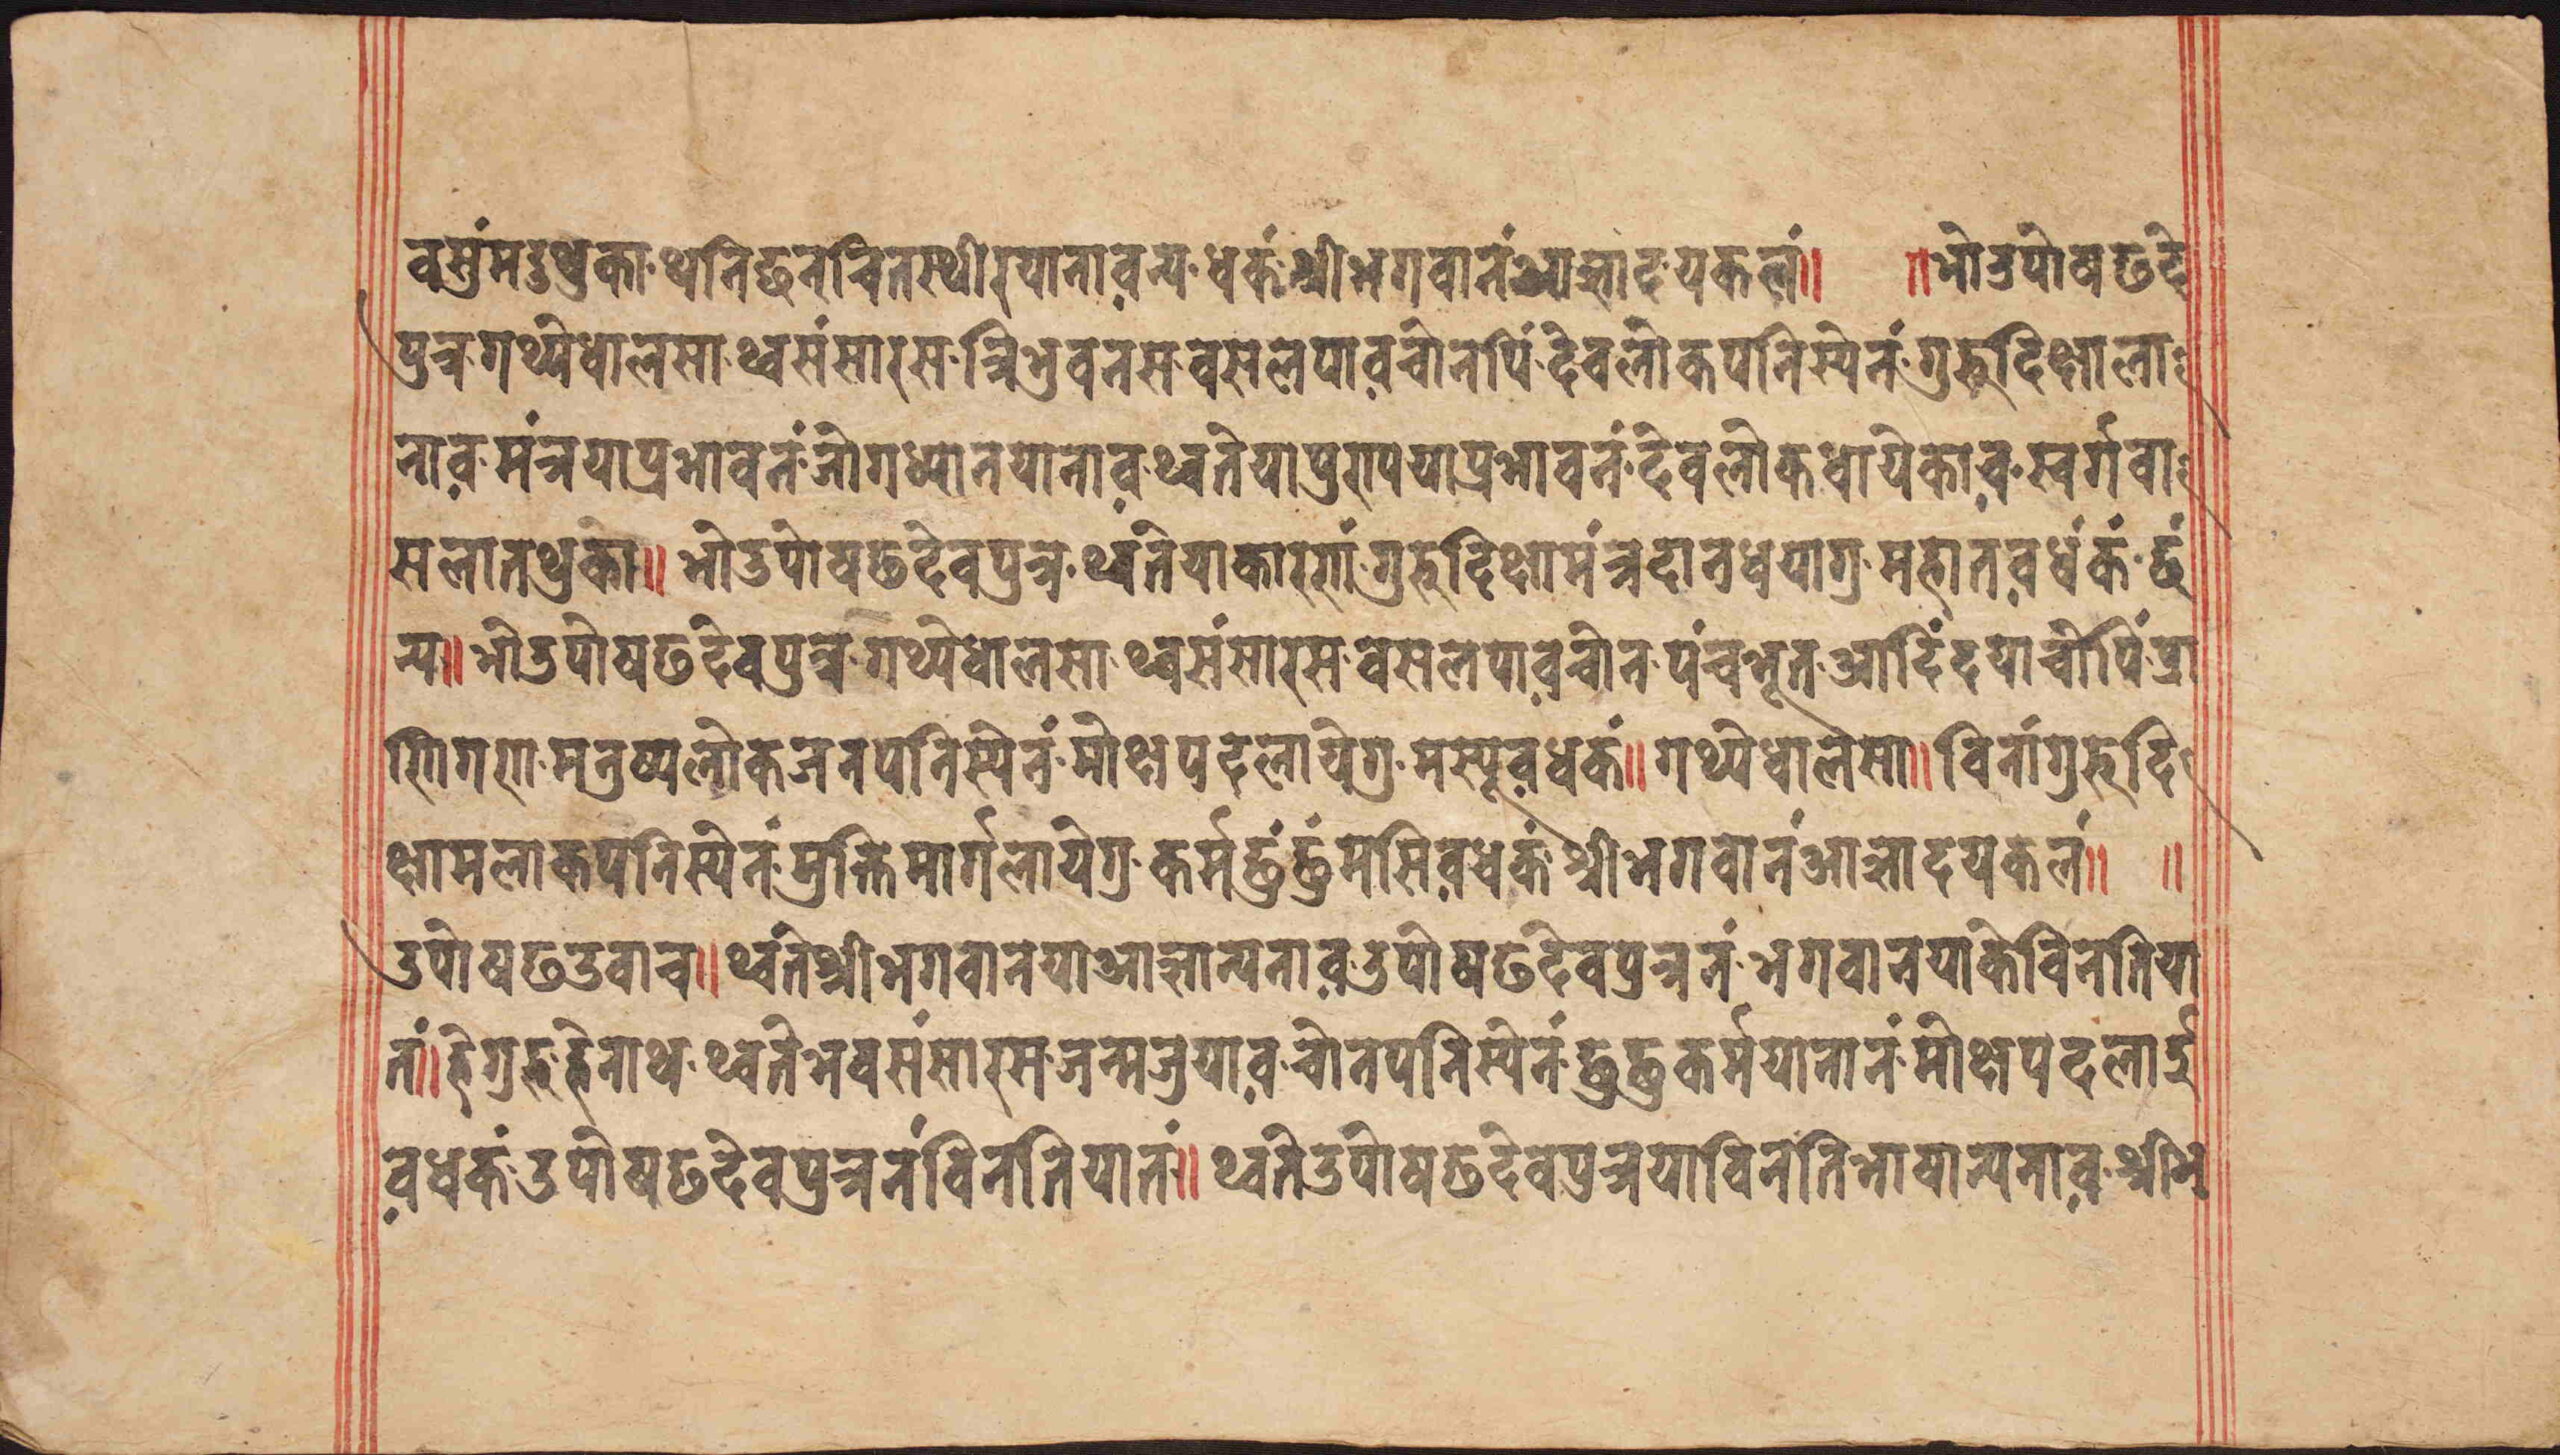 वसुंमदुथुका थनिछनचित्तस्थीरयानाव़न्य धकं श्रीभगवानंआज्ञादयकलं॥ ॥भोउपोषढदे
पुत्र गथ्येधालसा थ्वसंसारस त्रिभुवनस वसलपाव़चोनपिं देवलोकपनिस्येनं गुरूदिक्षाला
नाव़ मंत्रयाप्रभावनं जोगध्यानयानाव़ थ्वतेयापुरापयाप्रभावनं देवलोकधायेकाव़ स्वर्गवा
सलातथुका॥ भोउपोषढदेवपुत्र थ्वंतेयाकारणां गुरूदिक्षामंत्रदानधयागु महातव़धंकं छुं
न्य॥भोउपोषढदेवपुत्र गथ्येधालसा थ्वसंसारस वसलपाव़चोन पंचभूत आदिंदयाचोपिं प्रा
णिगण मनुष्यलोकजनपनिस्येनं मोक्षपदलायेगु मस्यूव़धकं॥ गथ्येधालसा॥ विनांगुरूदि
क्षामलाकपनिस्येनं मुक्तिमार्गलायेगु कर्मछुंछुंमसिव़धकं श्रीभगवानंआज्ञादयकलं॥ ॥
उपोषढउवाच॥ थ्वंतेश्रीभगवानयाआज्ञान्यनाव़ उपोषढदेवपुत्रनं भगवानयाकेविनतिया
तं॥हेगुरूहेनाथ थ्वतेभवसंसारस जन्मजुयाव़ चोनपनिस्येनं छुछुकर्मयानानं मोक्षपदलाई
व़धकं उपोषढदेवपुत्रनंविनतियातं॥ थ्वतेउपोषढदेवपुत्रयाविनतिभाषान्यनाव़ श्रीभ